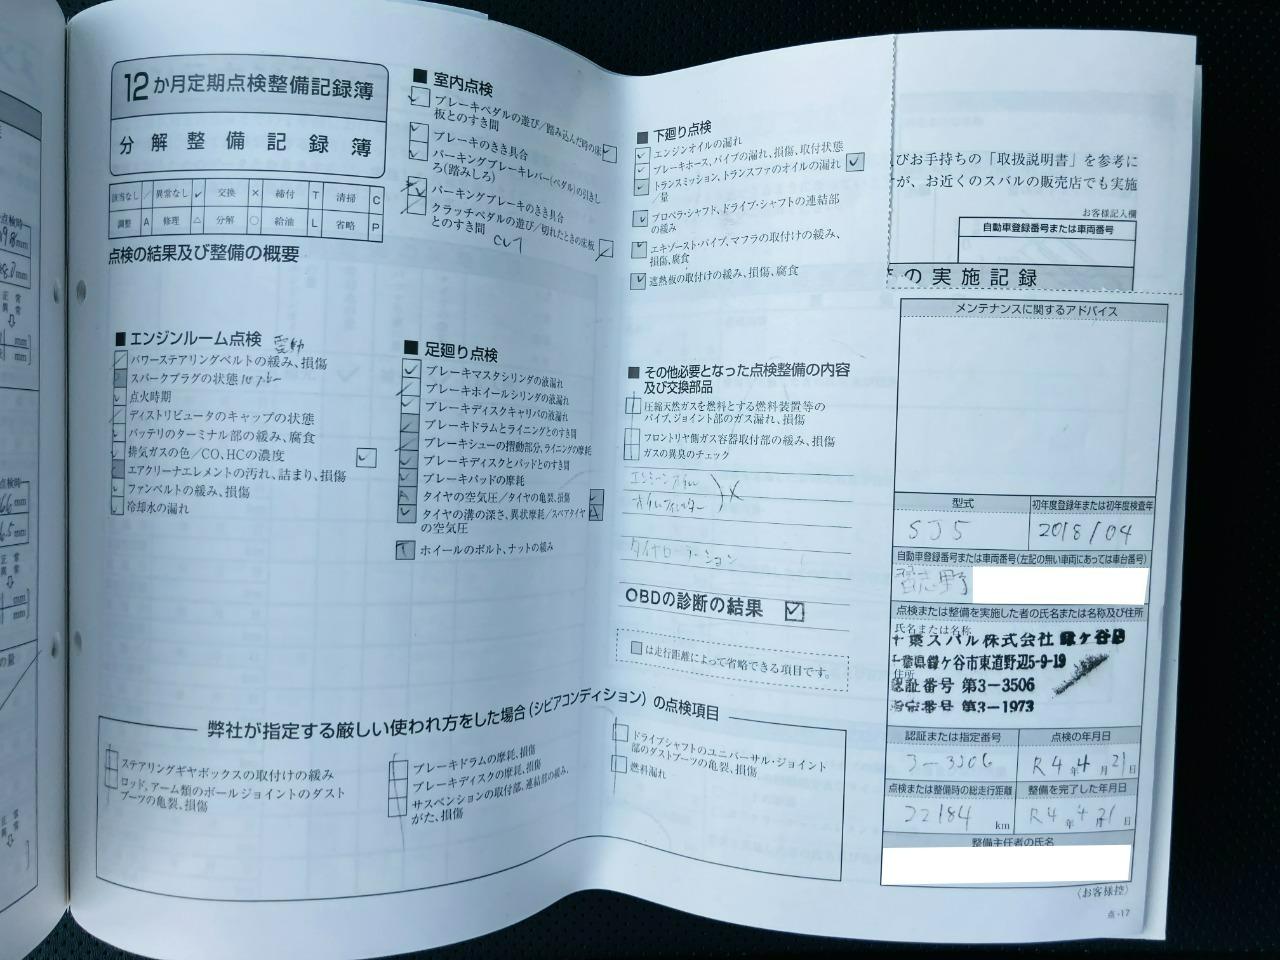 12か月定期点検整備記録簿
分解整備記録簿
該当なし ／ 異常なし ✓ 交換 × 締付 T 清掃 C
調整 A 修理 △ 分解 ○ 給油 L 省略 P
点検の結果及び整備の概要
■ エンジンルーム点検
電動
パワーステアリングベルトの緩み、損傷
スパークプラグの状態
点火時期
ディストリビュータのキャップの状態
バッテリのターミナル部の緩み、腐食
排気ガスの色／CO、HCの濃度
エアクリーナエレメントの汚れ、詰まり、損傷
ファンベルトの緩み、損傷
冷却水の漏れ
■ 室内点検
ブレーキペダルの遊び／踏み込んだ時の床
板とのすき間
ブレーキのきき具合
パーキングブレーキレバー(ペダル)の引きし
ろ(踏みしろ)
パーキングブレーキのきき具合
クラッチペダルの遊び／切れたときの床板
とのすき間
■ 足廻り点検
ブレーキマスタシリンダの液漏れ
ブレーキホイールシリンダの液漏れ
ブレーキディスクキャリパの液漏れ
ブレーキドラムとライニングとのすき間
ブレーキシューの摺動部分、ライニングの摩耗
ブレーキディスクとパッドとのすき間
ブレーキパッドの摩耗
タイヤの空気圧／タイヤの亀裂、損傷
タイヤの溝の深さ、異状摩耗／スペアタイヤ
の空気圧
ホイールのボルト、ナットの緩み
■ 下廻り点検
エンジンオイルの漏れ
ブレーキホース、パイプの漏れ、損傷、取付状態
トランスミッション、トランスファのオイルの漏れ
／量
プロペラ・シャフト、ドライブ・シャフトの連結部
の緩み
エキゾースト・パイプ、マフラの取付けの緩み、
損傷、腐食
遮熱板の取付けの緩み、損傷、腐食
■ その他必要となった点検整備の内容
及び交換部品
圧縮天然ガスを燃料とする燃料装置等の
パイプ、ジョイント部のガス漏れ、損傷
フロントリヤ側ガス容器取付部の緩み、損傷
ガスの異臭のチェック
エンジンオイル
オイルフィルター
×
タイヤローテーション
OBDの診断の結果
は走行距離によって省略できる項目です。
弊社が指定する厳しい使われ方をした場合（シビアコンディション）の点検項目
ステアリングギヤボックスの取付けの緩み
ロッド、アーム類のボールジョイントのダスト
ブーツの亀裂、損傷
ブレーキドラムの摩耗、損傷
ブレーキディスクの摩耗、損傷
サスペンションの取付部、連結部の緩み、
がた、損傷
ドライブシャフトのユニバーサル・ジョイント
部のダストブーツの亀裂、損傷
燃料漏れ
びお手持ちの「取扱説明書」を参考に
が、お近くのスバルの販売店でも実施
お客様記入欄
自動車登録番号または車両番号
の実施記録
メンテナンスに関するアドバイス
型式
初年度登録年または初年度検査年
SJ5
2018/04
自動車登録番号または車両番号(左記の無い車両にあっては車台番号)
習志野
点検または整備を実施した者の氏名または名称及び住所
氏名または名称
千葉スバル株式会社 鎌ヶ谷店
千葉県鎌ヶ谷市東道野辺5-9-19
住所
認証番号 第3-3506
指定番号 第3-1973
認証または指定番号
点検の年月日
3-3506
R4年4月21日
点検または整備時の総走行距離
整備を完了した年月日
22184 km
R4年4月21日
整備主任者の氏名
(お客様控)
点-17